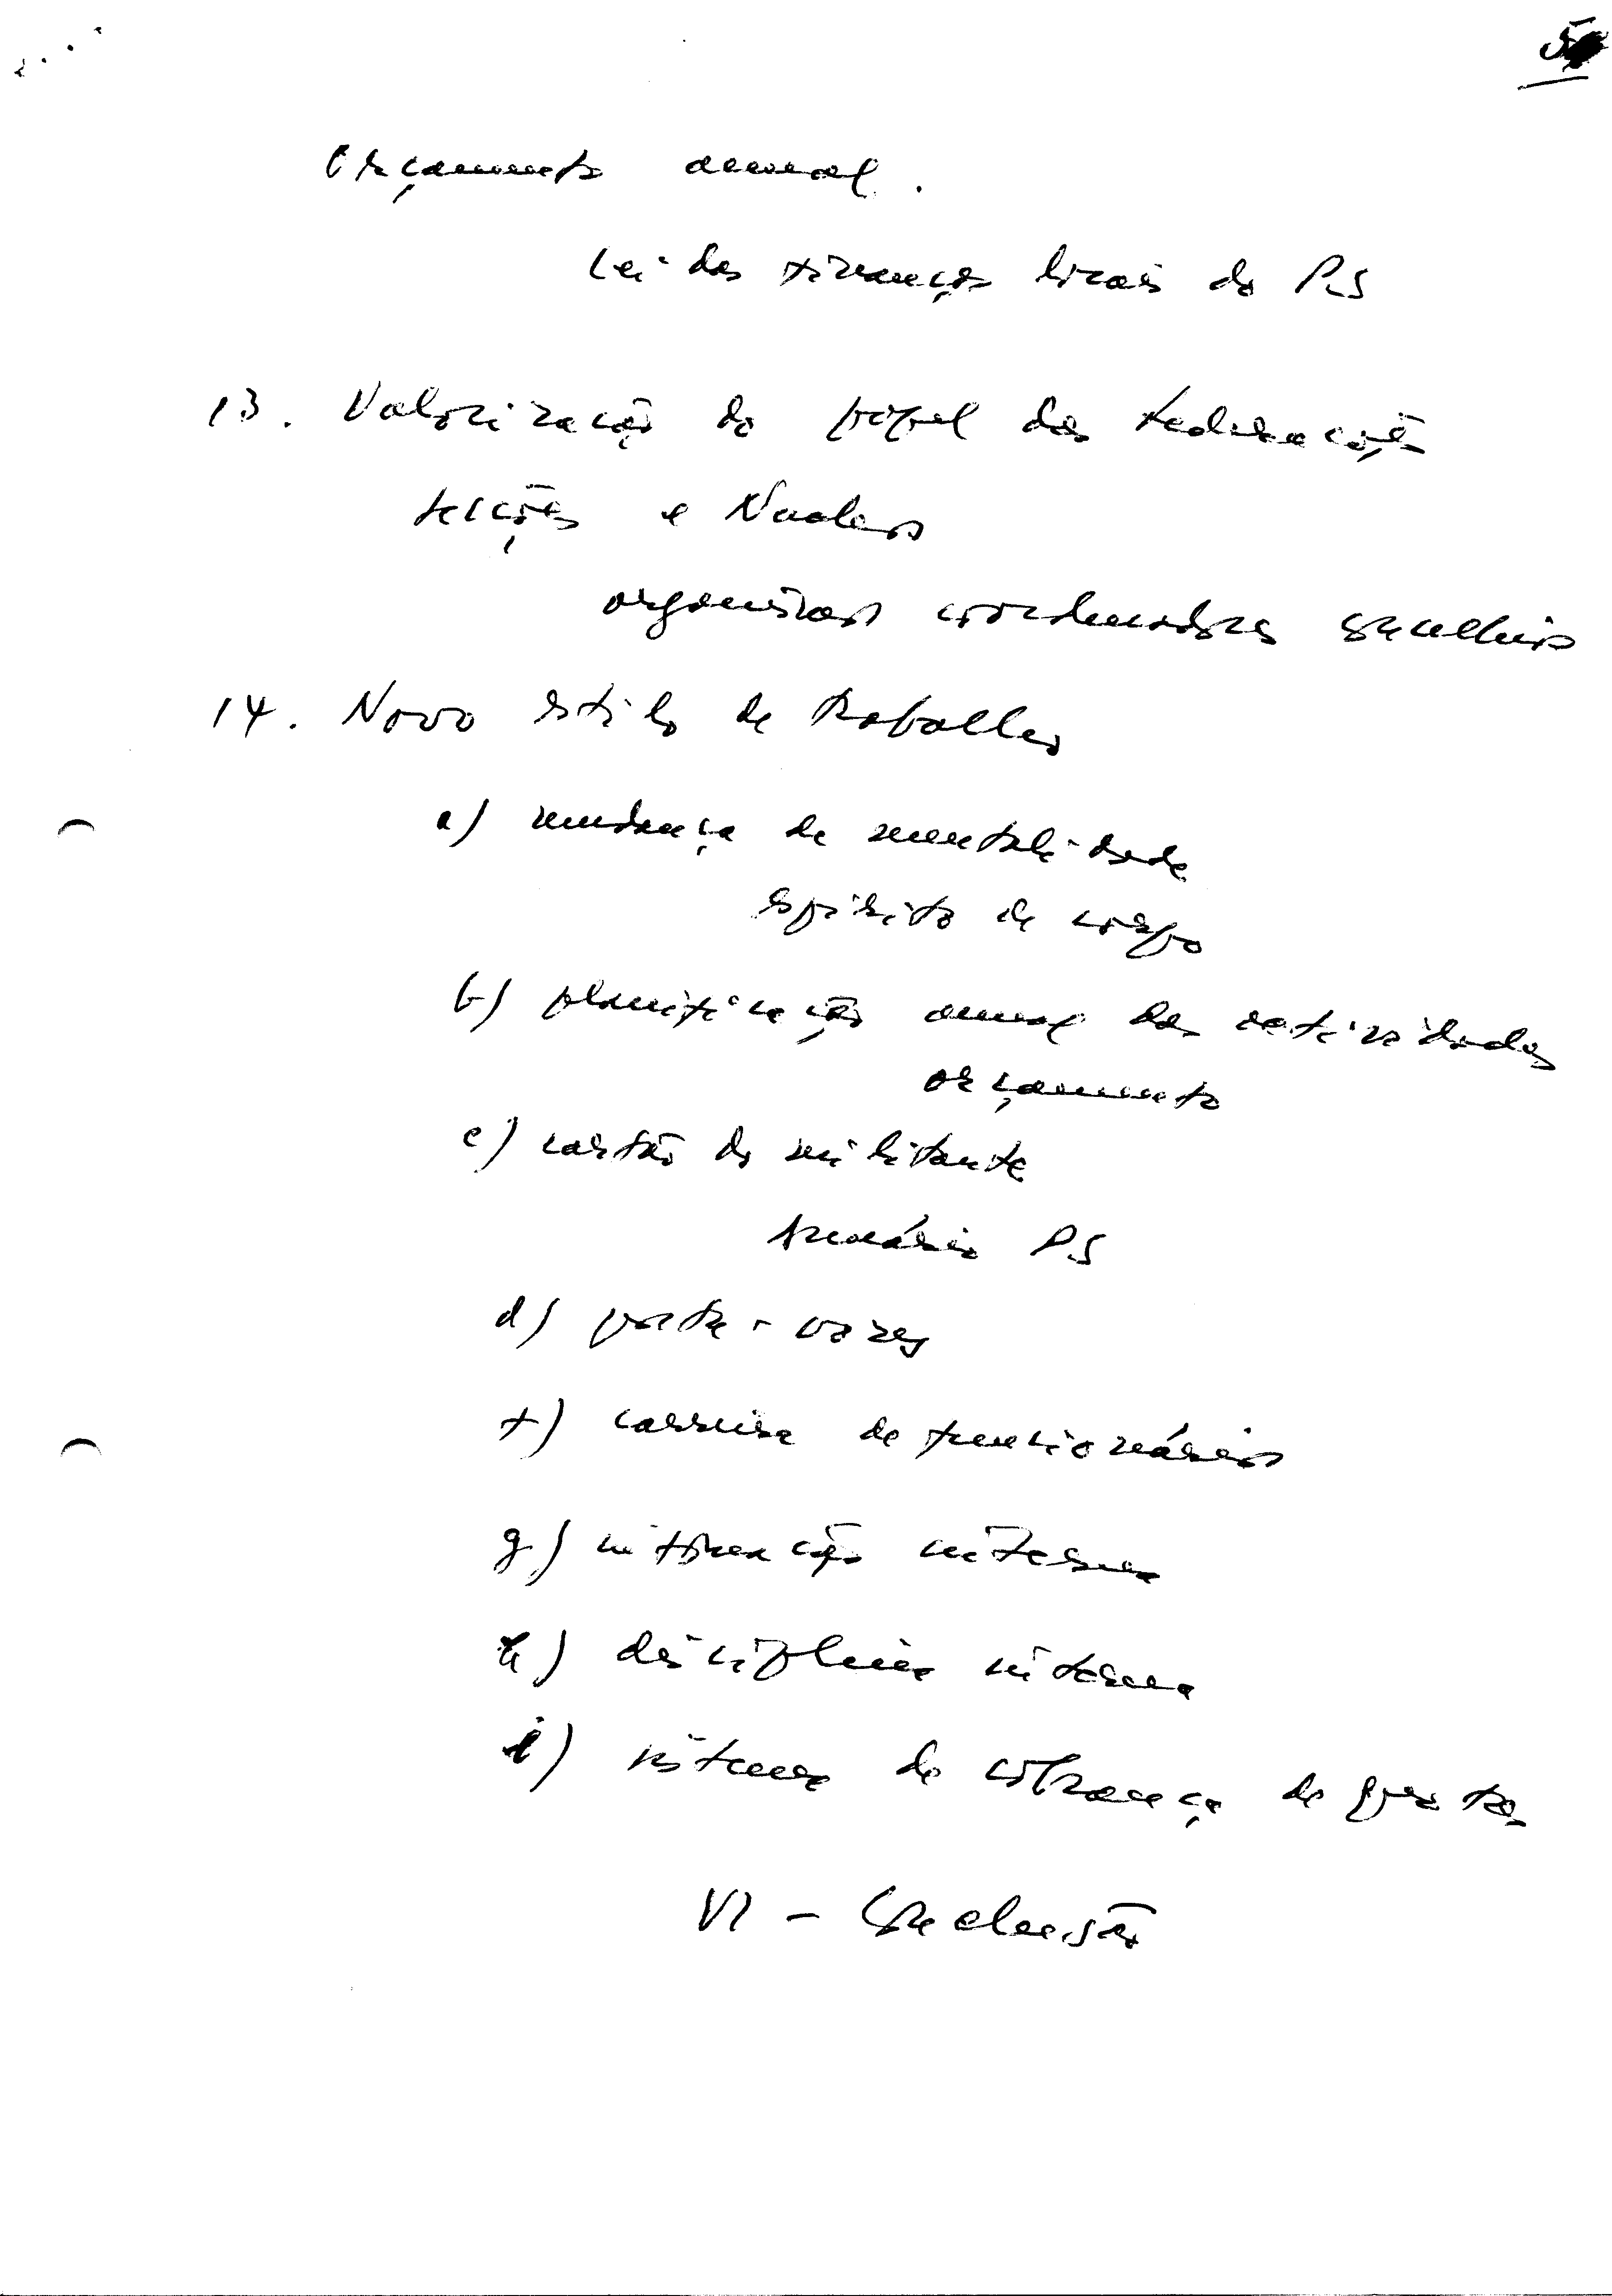 5
Orçamento anual.
Lei das finanças locais do PS
13. Valorização do papel das federações
secções e Nucleos
organismos coordenadores concelhios
14. Novo estilo de trabalho
a) mudança de mentalidade
espirito de corpo
b) planificação anual das actividades
orçamento
c) cartão do militante
Anuário PS
d) porta-vozes
f) carreira de funcionários
g) informação interna
h) disciplina interna
i) sistema de cobrança de quotas
VI - Conclusão